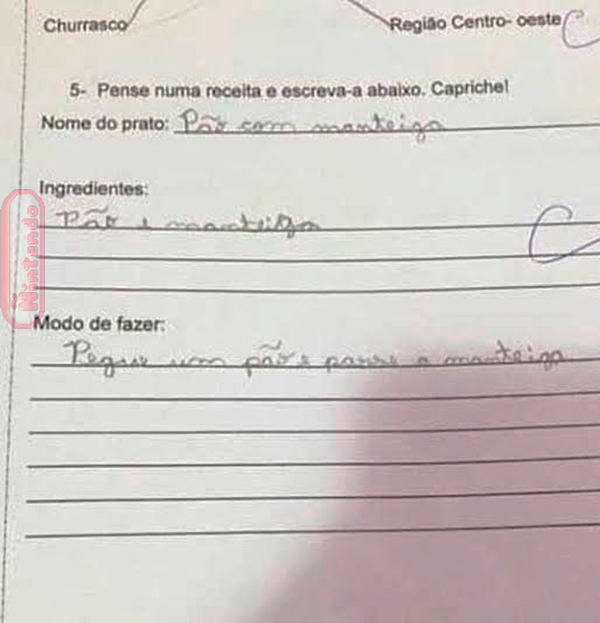 Churrasco
Região Centro- oeste C
5- Pense numa receita e escreva-a abaixo. Capriche!
Nome do prato: Pão com manteiga
Ingredientes:
Pão e manteiga
C
Nintendo
Modo de fazer:
Pegue um pão e passe a manteiga